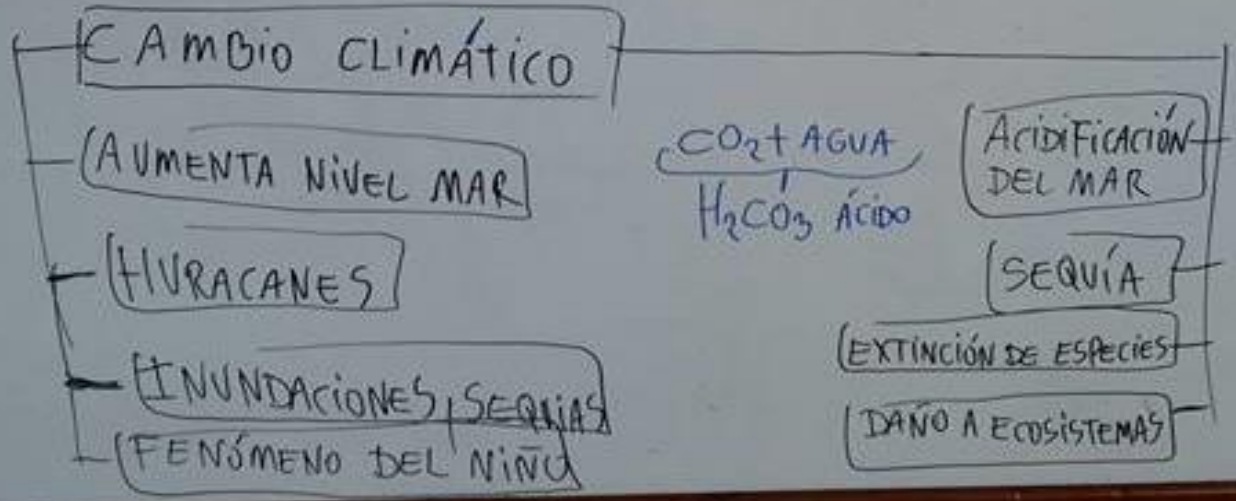 CAMBIO CLIMÁTICO
AUMENTA NIVEL MAR
HURACANES
INUNDACIONES, SEQUIAS
FENÓMENO DEL NIÑO
CO₂ + AGUA
H₂CO₃ ÁCIDO
ACIDIFICACIÓN
DEL MAR
SEQUÍA
EXTINCIÓN DE ESPECIES
DAÑO A ECOSISTEMAS